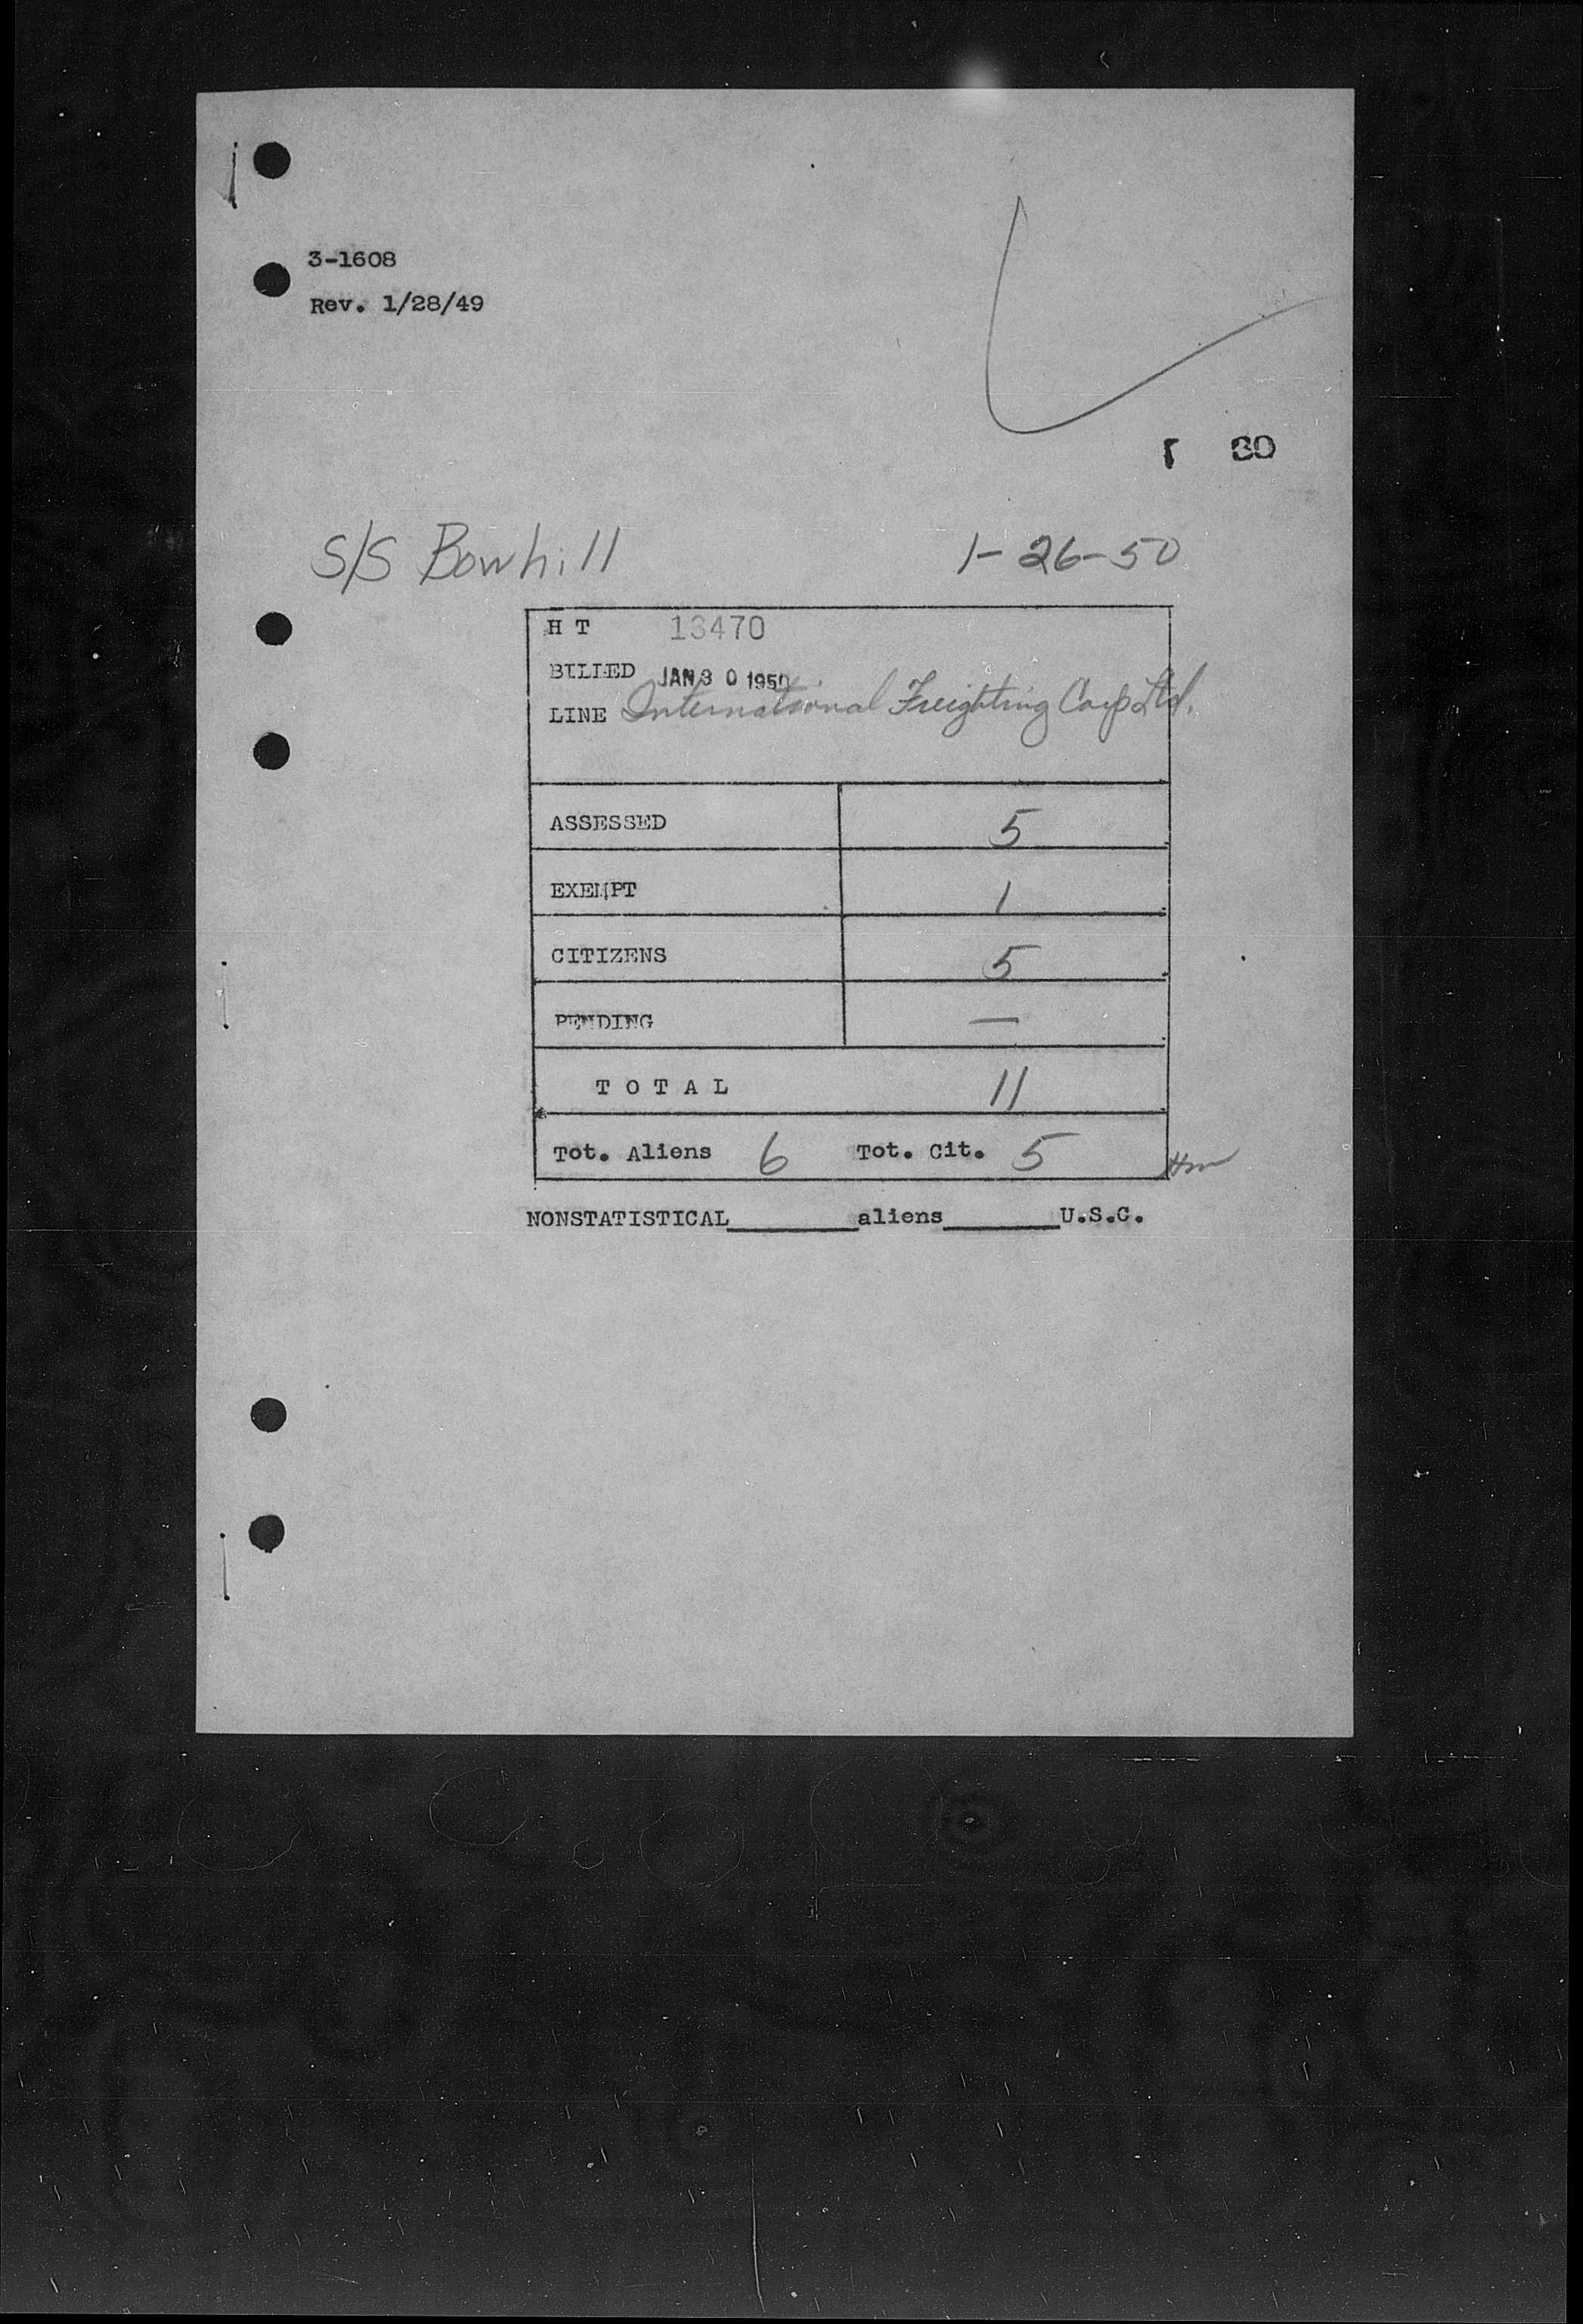 3-1608
Rev. 1/28/49
30
S/S Bowhill 1-26-50
H T 13470
BILLED JAN 30 1950
LINE International Freighting Corp Ltd.
ASSESSED 5
EXEMPT 1
CITIZENS 5
PENDING —
TOTAL 11
Tot. Aliens 6 Tot. Cit. 5
NONSTATISTICAL________aliens_______U.S.C.